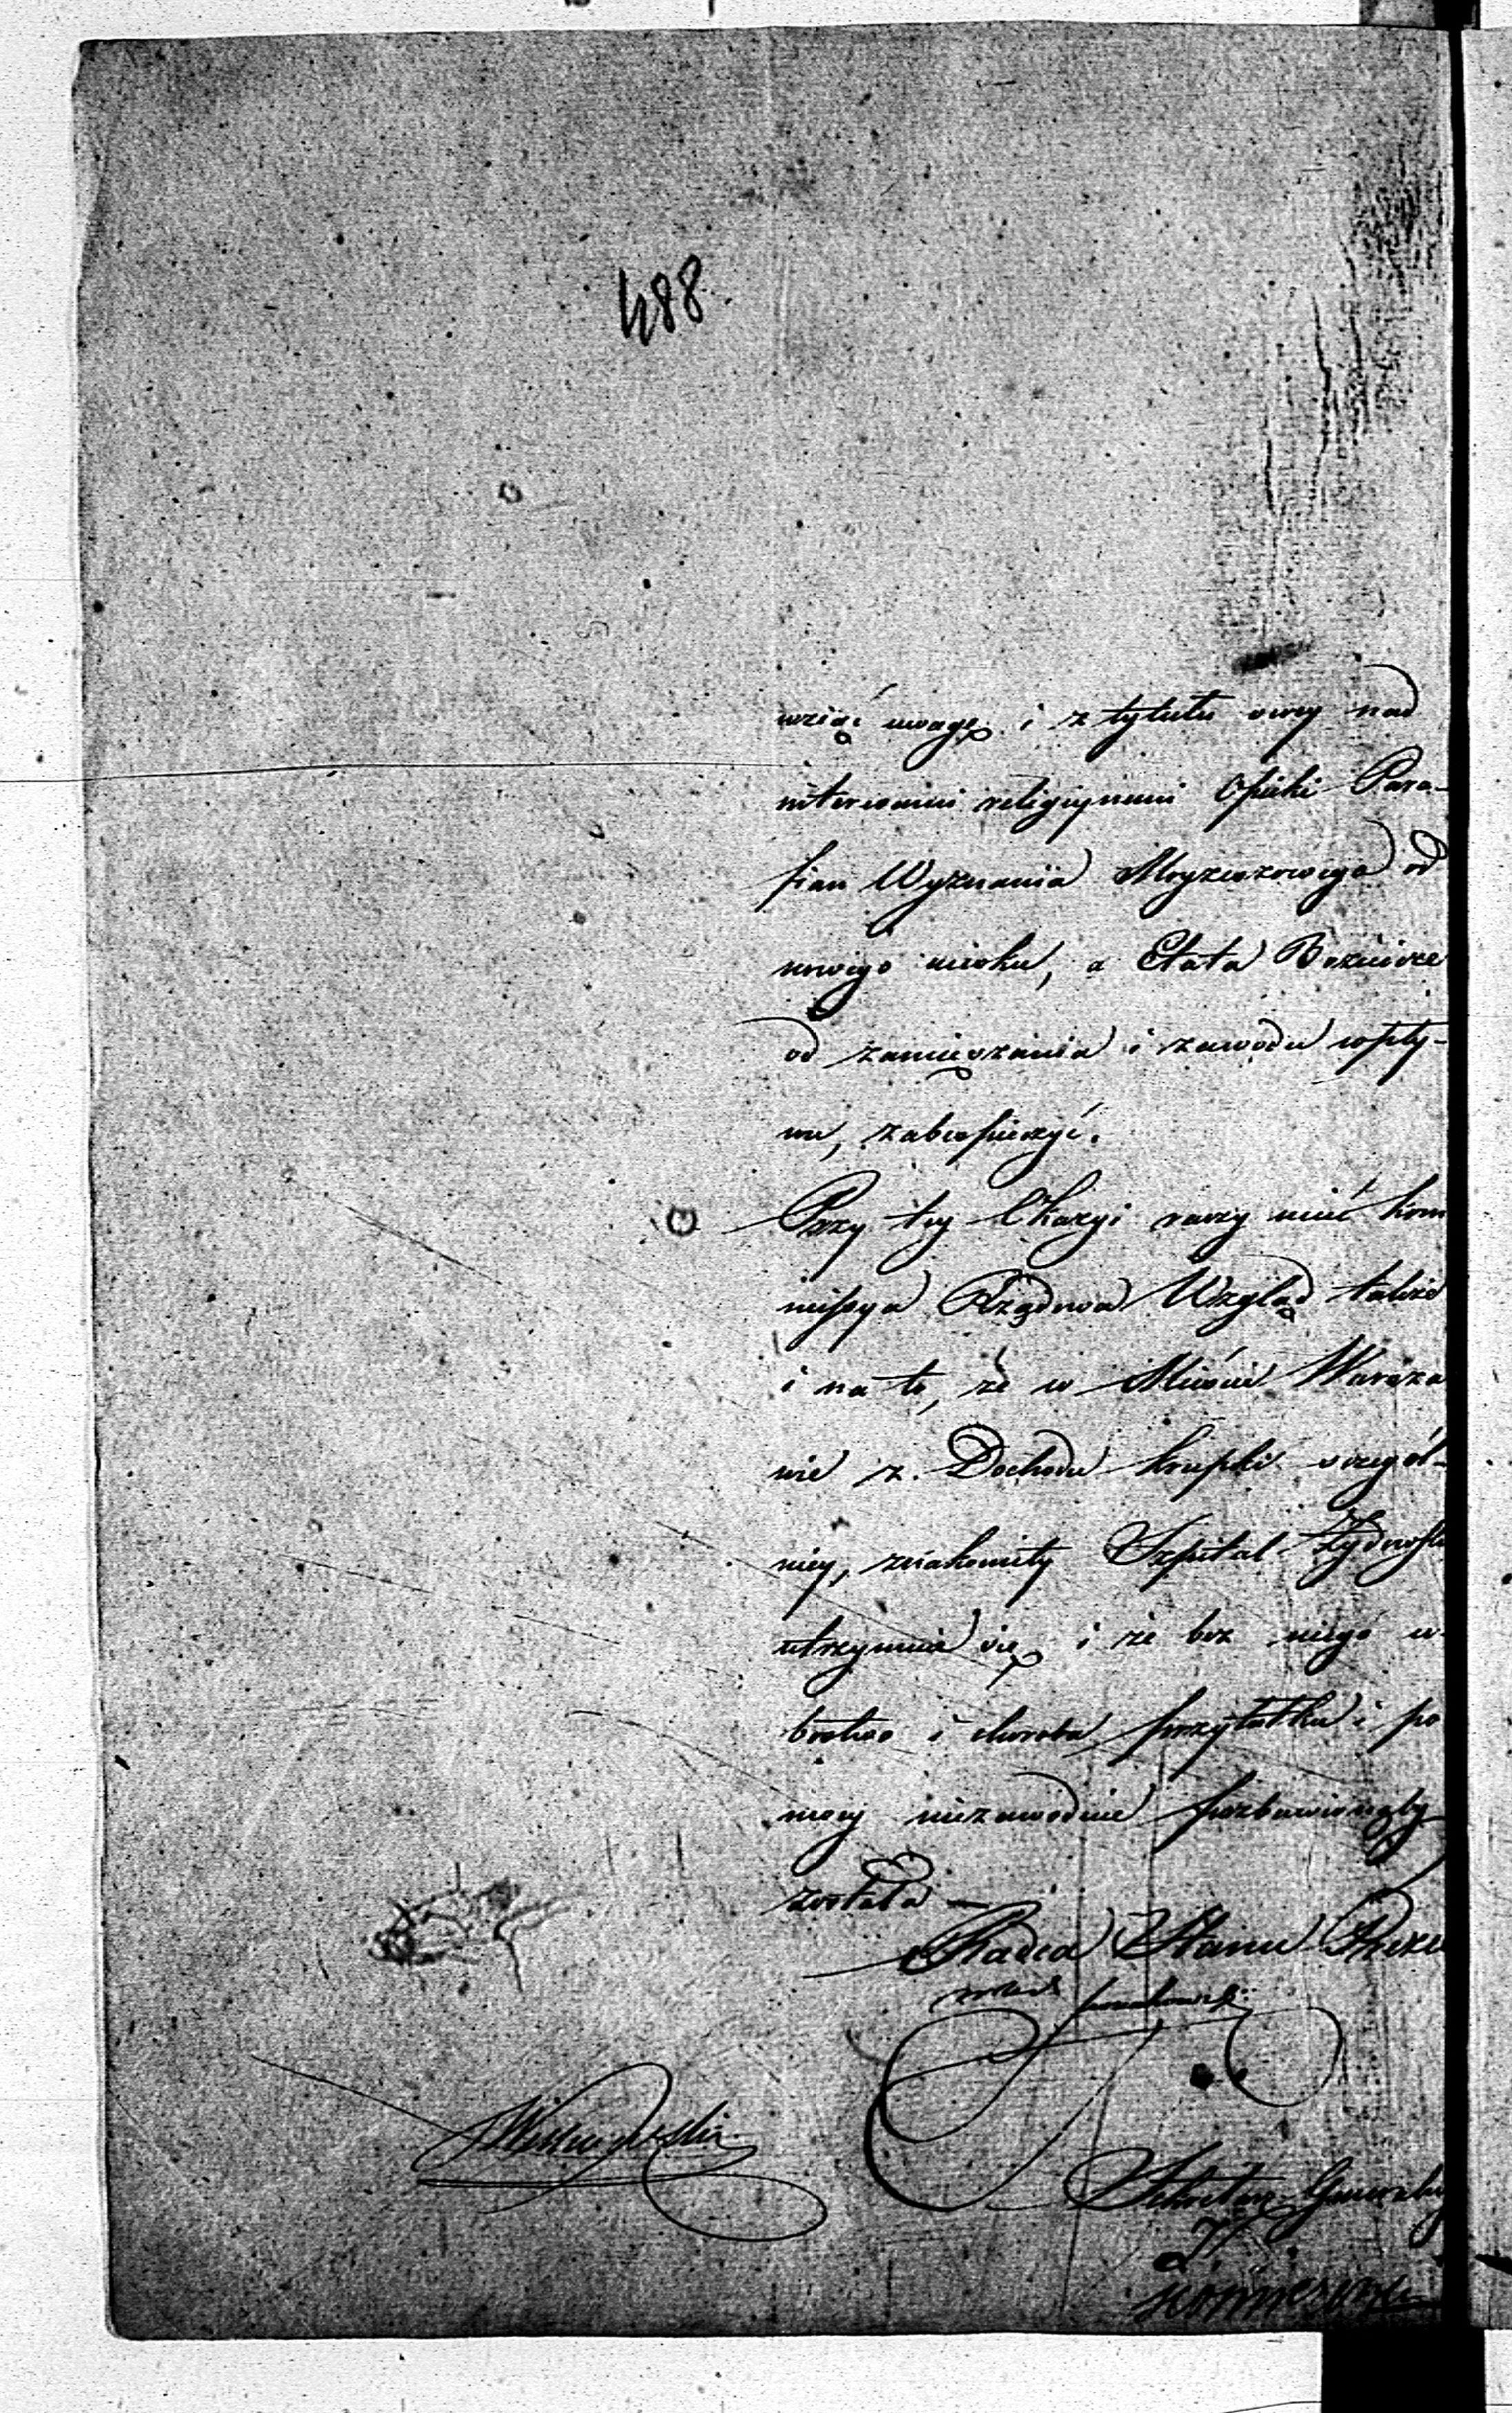 488
wziąć uwagę i z tytułu swey nad
interesami religiynemi Opieki Para-
fian Wyznania Moyżeszowego od
nowego ucisku, a Etata Bożnicze
od zamięszania i zawodu wpły-
wu, zabespieczyć.
Przy tey Okazyi raczy mieć Kom
missya Rządowa Wzgląd także
i na to, że w Mieście Warsza
wie z Dochodu Krupki szczegól-
niey, znakomity Szpital Żydowski
utrzymuie się i że bez niego u-
bostwo i choroba przytułku i po
mocy niezawodnie pozbawionąby
została —
Radca Stanu Preze
Sekretarz Generalny